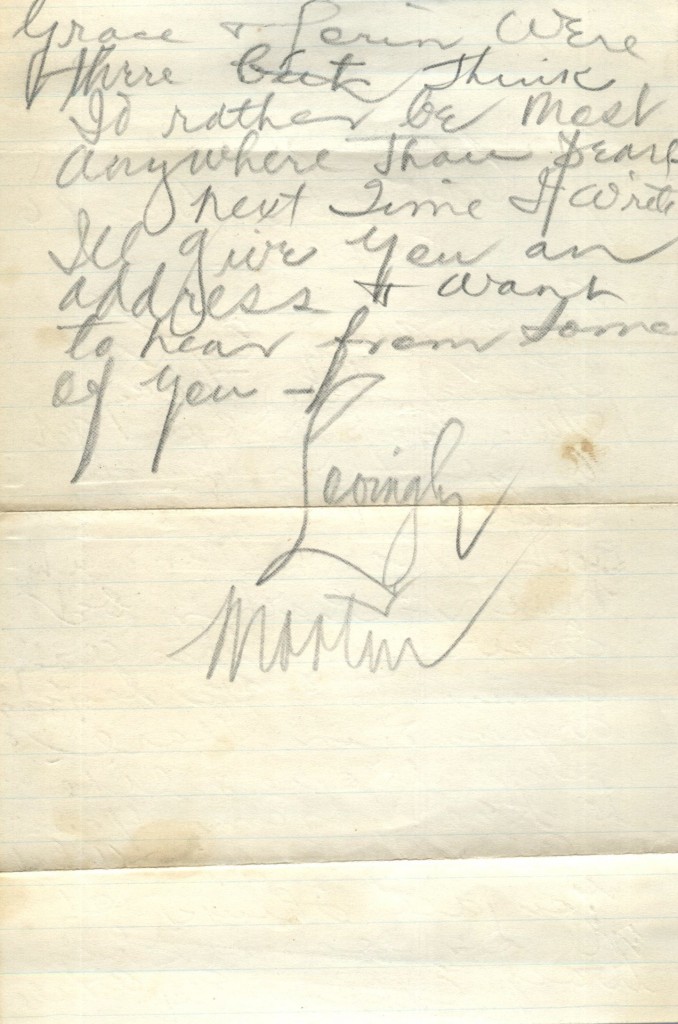 Grace & Perin were
there but think
I'd rather be most
anywhere than
next time I write
I'll give you an
address & want
to hear from some
of you –
Lovingly
Martin